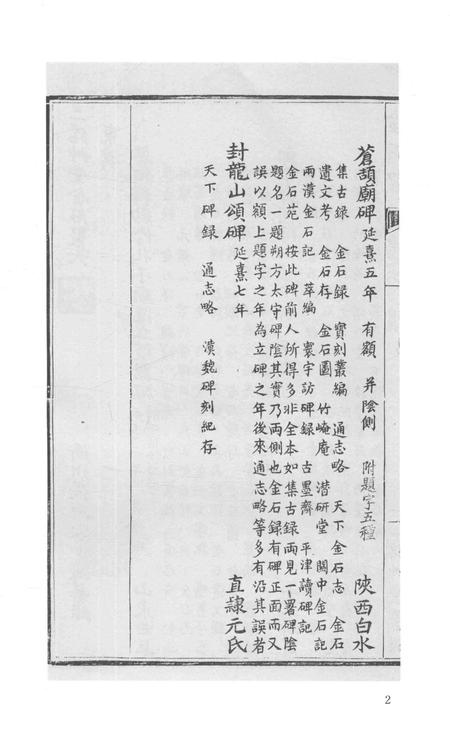 蒼頡廟碑 延熹五年 有額 并陰側 附題字五種 陝西白水
集古録 金石録 寶刻叢編 通志略 天下金石志 金石
遺文考 金石存 金石圖 竹崦庵 潜研堂 關中金石記
兩漢金石記 萃編 寰宇訪碑録 古墨齋 平津讀碑記
金石苑 按此碑前人所得多非全本如集古録兩見一署碑陰
題名一題朔方太守碑陰其實乃兩側也金石録有碑正面而又
誤以額上題字之年為立碑之年後來通志略等多有沿其誤者
封龍山頌碑 延熹七年 直隷元氏
天下碑録 通志略 漢魏碑刻紀存
2